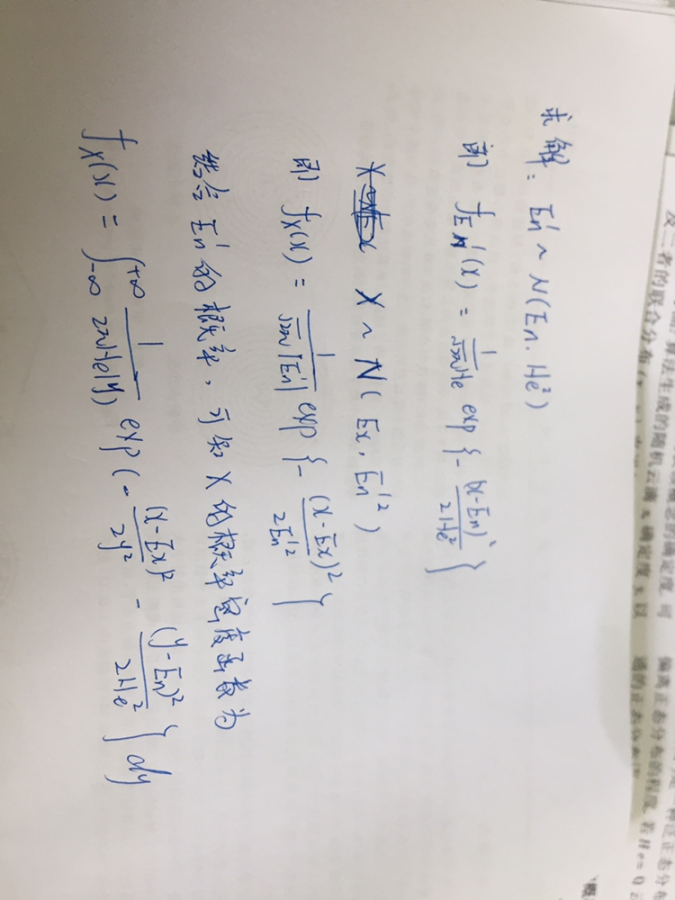 求解: En' ~ N(En, He²)
即 f_{En'}(x) = \frac{1}{\sqrt{2π}He} exp{-\frac{(x-En)²}{2He²}}
X ~ N(Ex, En'²)
即 f_X(x) = \frac{1}{\sqrt{2π}|En'|} exp{-\frac{(x-Ex)²}{2En'²}}
结合En'的概率,可知X的概率密度函数为
f_X(x) = ∫_{-∞}^{+∞} \frac{1}{2πHe|y|} exp{-\frac{(x-Ex)²}{2y²} - \frac{(y-En)²}{2He²}} dy
及二者的联合分布
算法生成的随机云滴 x, 确定度 y, 以
概念的确定度, 可
偏离正态分布的程度, 若 He=0